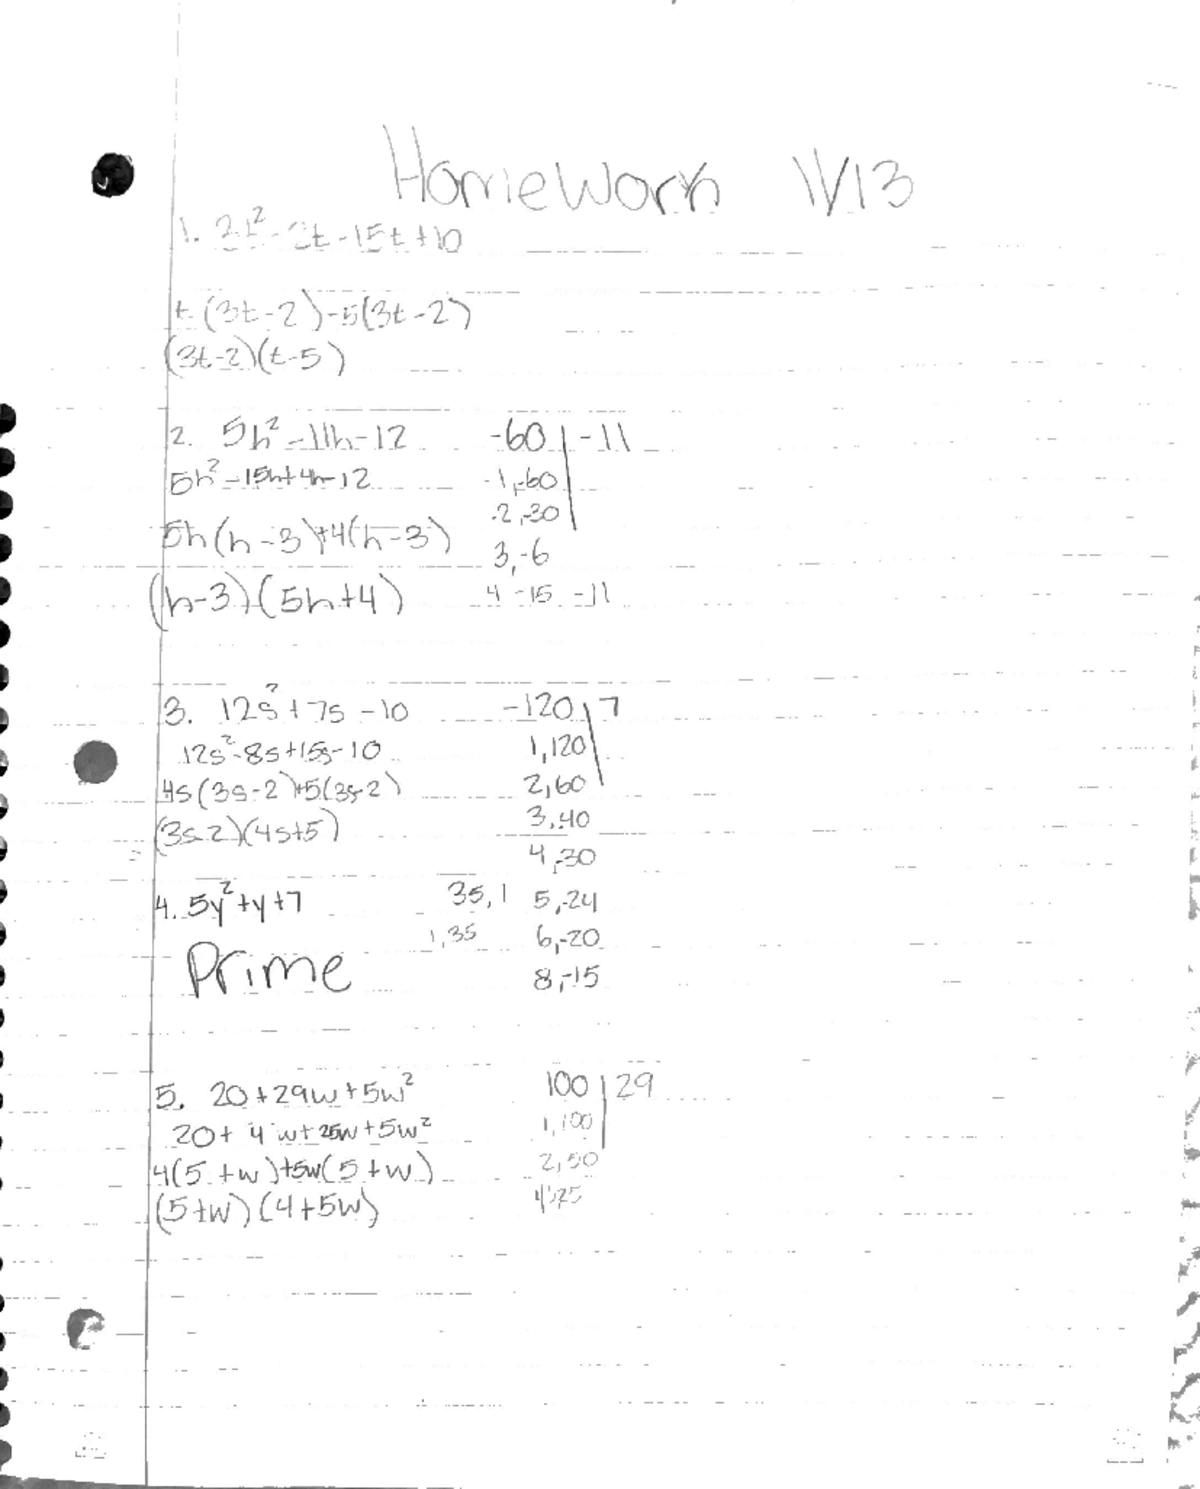 HomeWork 11/13
1. 3t² - 2t - 15t + 10
t(3t-2)-5(3t-2)
(3t-2)(t-5)
2. 5h² - 11h - 12 -60 | -11
5h² - 15h + 4h - 12 -1,-60
-2,-30
5h(h-3)+4(h-3)
3,-6
(h-3)(5h+4) 4 -15 -11
3. 12s² + 7s - 10 -120 | 7
12s² - 8s + 15s - 10 1,120
4s(3s-2)+5(3s-2) 2,60
(3s-2)(4s+5) 3,40
4,-30
4. 5y² + y + 7 35,1 5,-24
1,35 6,-20
Prime 8,-15
5. 20 + 29w + 5w² 100 | 29
20 + 4w + 25w + 5w² 1,100
4(5+w)+5w(5+w) 2,50
(5+w)(4+5w) 4,25